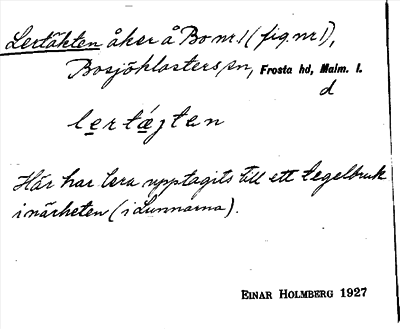 Lertäkten åker å Bo nr 1 (fig. nr 1),
Bosjöklosters sn, Frosta hd, Malm. l.
d
lertæjtan
Här har lera upptagits till ett tegelbruk
i närheten (i Lunnarna).
EINAR HOLMBERG 1927